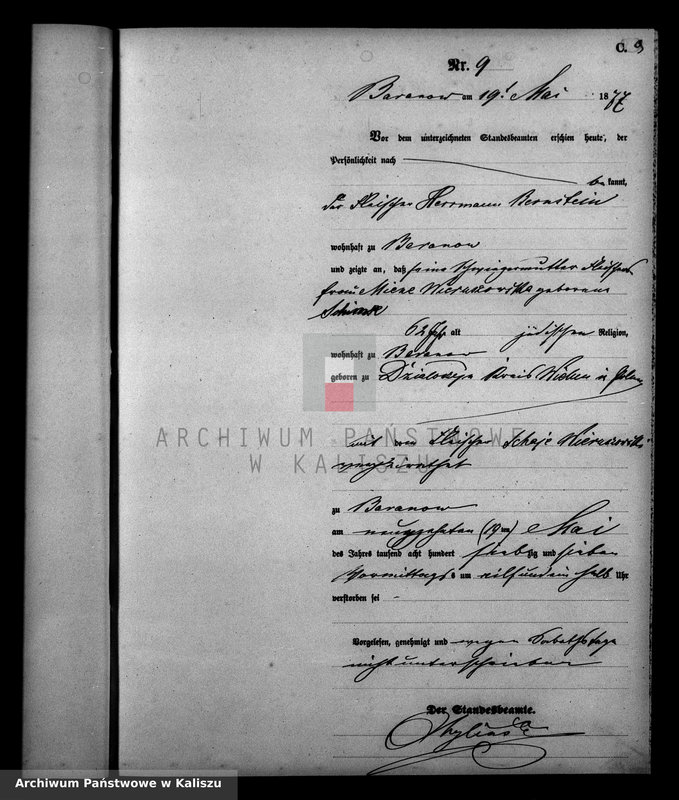 C. 9
Nr. 9
Baranow am 19t Mai 1877
Vor dem unterzeichneten Standesbeamten erschien heute, der
Persönlichkeit nach
be kannt,
der Fleischer Herrmann Bernstein
wohnhaft zu Baranow
und zeigte an, daß seine Schwiegermutter Fleischer
frau Miene Wieruszowska geborene
62 Jahr alt jüdischen Religion,
wohnhaft zu Baranow
geboren zu Kreis Wielun in Polen
mit dem Fleischer Schaje Wieruszowski
verheirathet
zu Baranow
am neunzehnten (19ten) Mai
des Jahres tausend acht hundert siebzig und sieben
Vormittags um eilf und ein halb Uhr
verstorben sei
Vorgelesen, genehmigt und wegen Sabathstage
nicht unterschrieben
Der Standesbeamte.
ARCHIWUM PAŃSTWOWE
W KALISZU
Archiwum Państwowe w Kaliszu